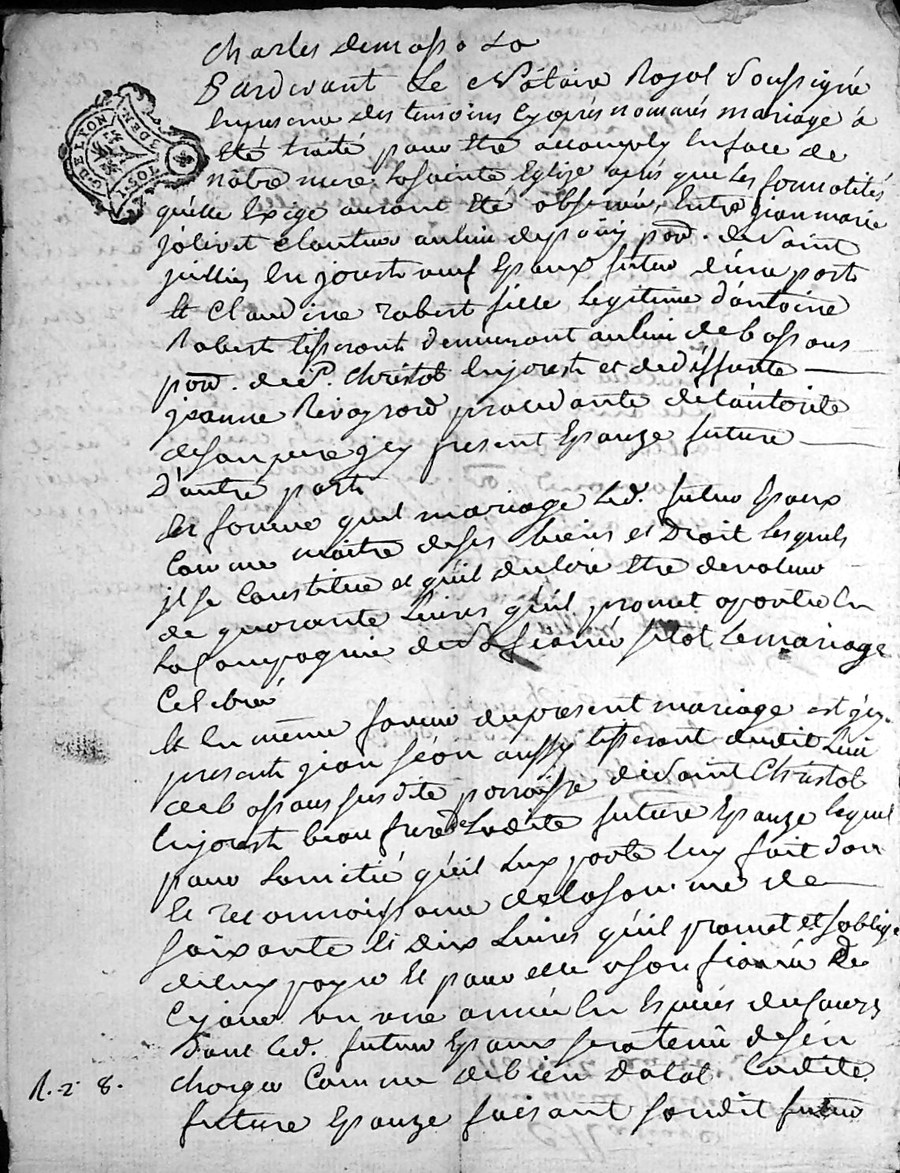 Charles
Pardevant Le Notaire Royal Soussigné
En presence des temoins Cy aprés nommés mariage á
Eté traité pour Etre accomply En face de
nôtre mere La Sainte Eglise aprés que Les formalités
qu'elle Exige auront Eté observées, Entre jean marie
jolivet au lieu de parr. de Saint
jullien En jarest Epoux futur d'une part
Et Claudine robert fille Legitime d'antoine
Robert tisserant demeurant au lieu de bassous
parr. de St. Christot En jarest et de deffunte
jeanne Revoyrard procedante de L'autorité
de son pere icy present Epouze future
D'autre part
En faveur quel mariage Led. futur Epoux
Comme maitre de ses biens et Droit Lesquels
jl se Constitue et qu'il dit Etre de valeur
de quarante Livres qu'il promet aporter En
La Compagnie de Sa fiancée sitot Le mariage
Celebré
Et En même faveur du present mariage est icy
present jean aussy tisserant dudit Lieu
de bassous susdite parroisse de Saint Christot
En jarest beau frere de Ladite future Epouze Lequel
pour L'amitié qu'il Luy porte Luy fait don
Et reconnoissance de La somme de
soixante Et dix Livres qu'il promet et s'oblige
de Luy payer Et pour elle a son fiancé De
Ce jour En une année En Espéces de Cours
Dont Led. futur Epoux sera tenû de s'en
charger Comme de bien Dotal Ladite
future Epouze faisant sondit futur
R. 2 8.
G. DE LYON